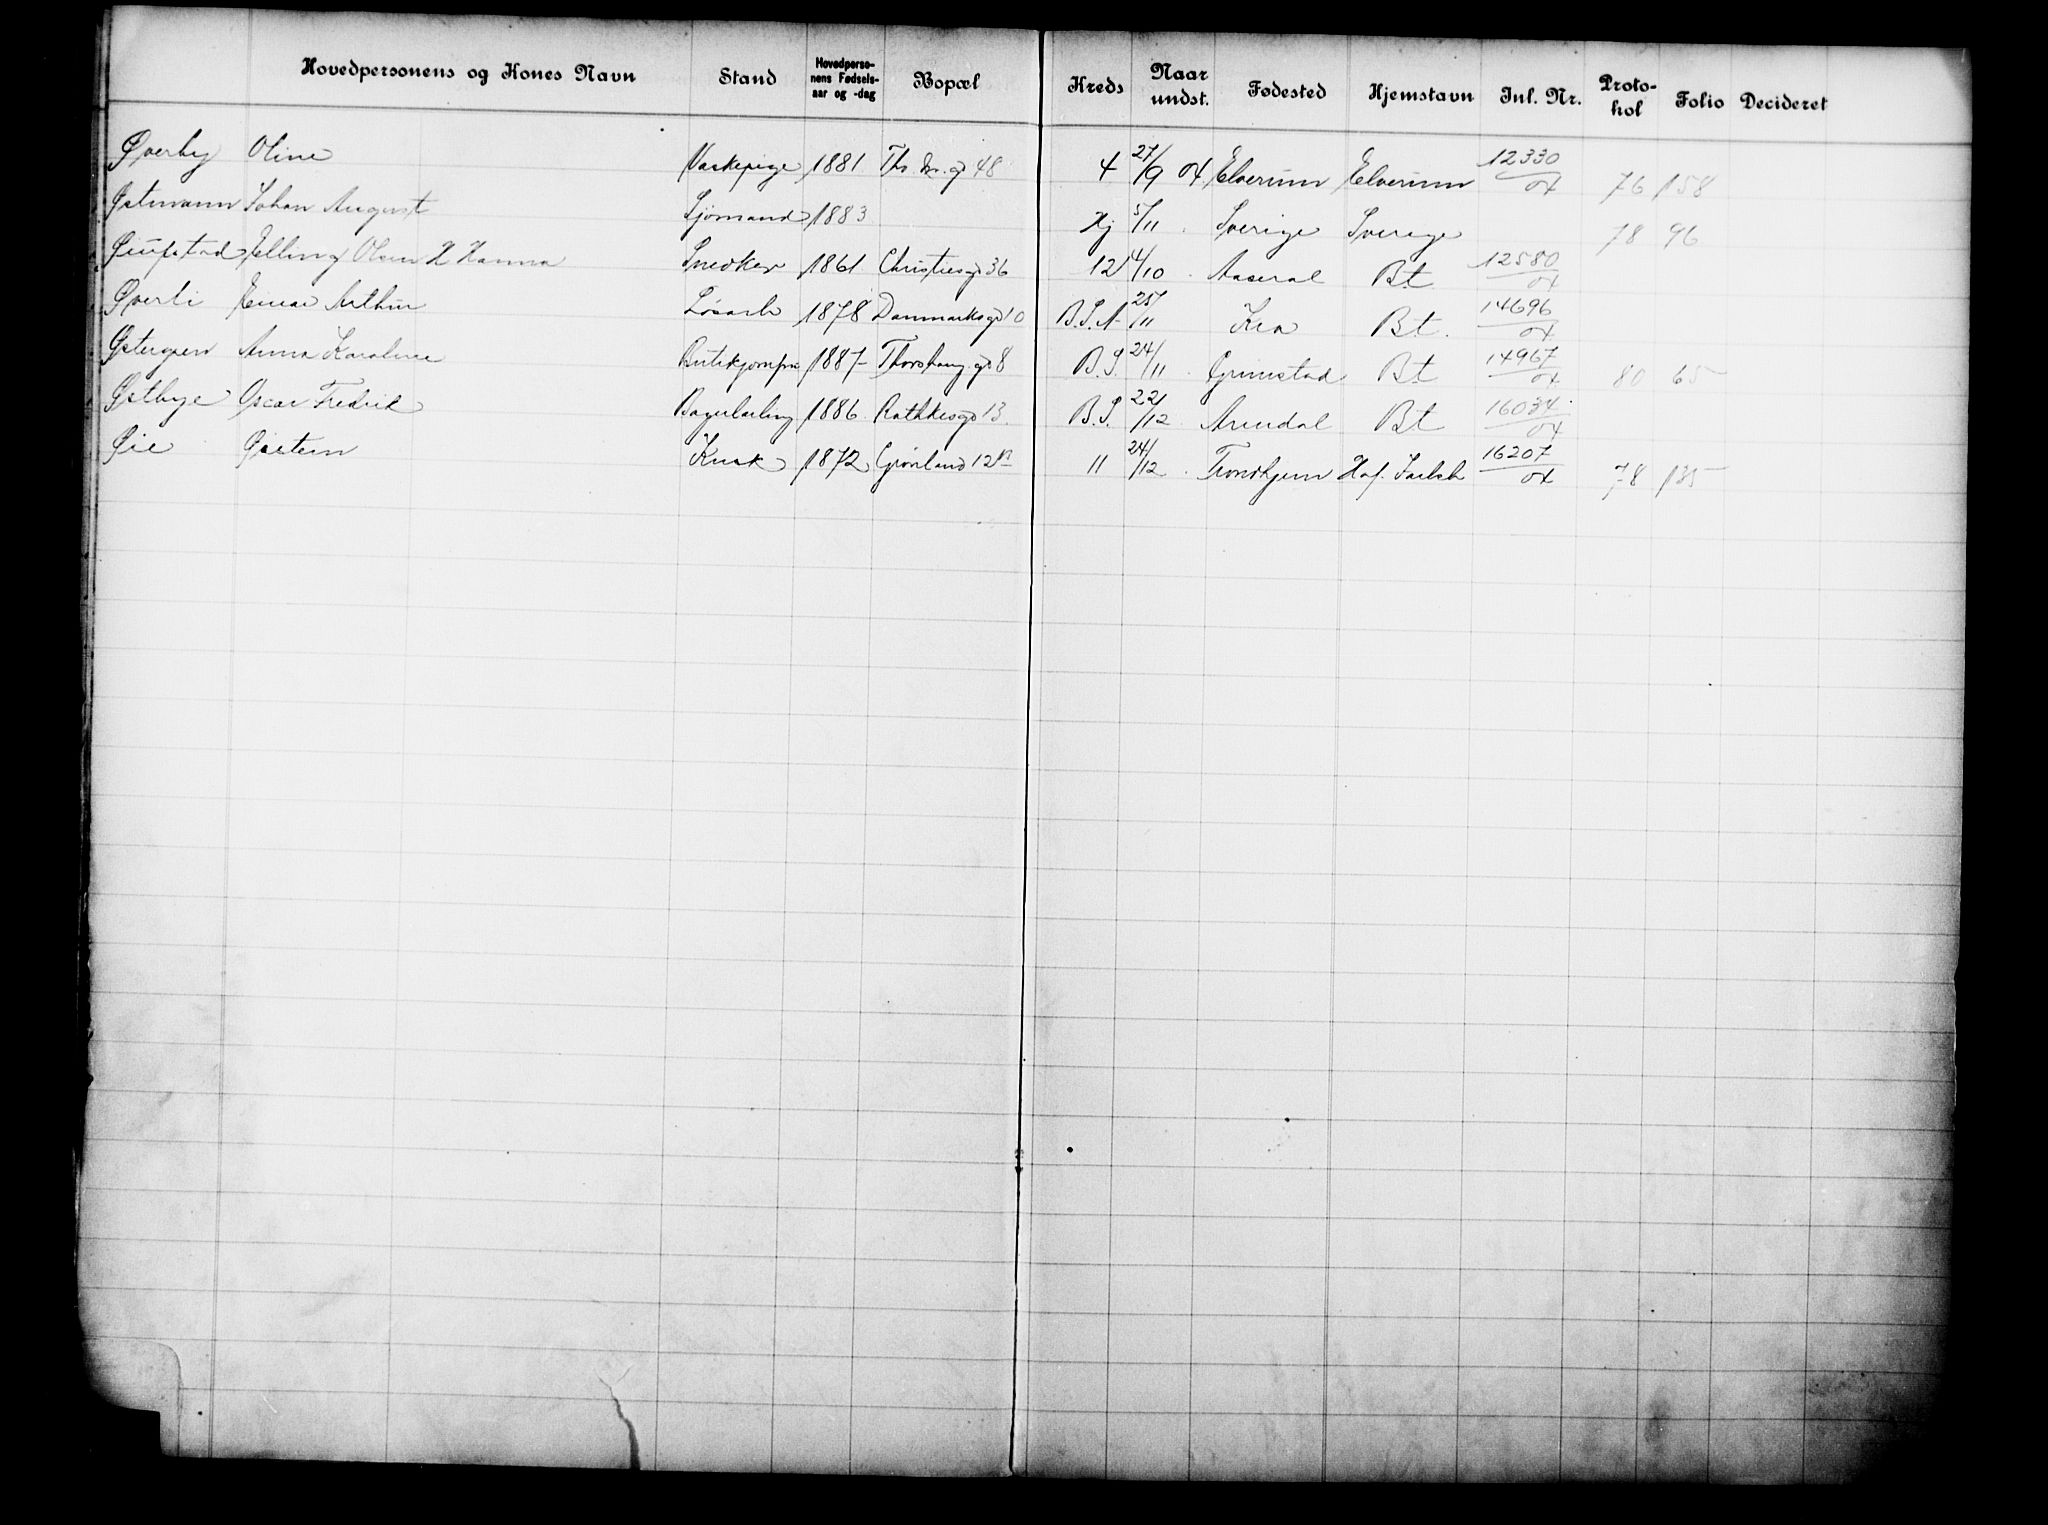 Hovedpersonens og Kones Navn Stand Hovedperso-nens Fødsels-aar og -dag Bopæl Kreds Naar undst. Fødested Hjemstavn Jnl. Nr. Proto-kol Folio Decideret
Øverby Oline Vaskepige 1881 Ths. M. gd 48 4 27/9 04 Elverum Elverum 12330/04 76 158
Østmann Johan August Sjömand 1883 Hj 5/11 . Sverige Sverige 78 96
Elling Olsen H Hanna Snedker 1861 Christiesgd 36 12 4/10 . Aaseral Bt 12580/04
Øverli Einar Arthur Løsarb 1878 Danmarksgd 10 B.S.A 25/11 Kra Bt. 14696/04
Østergren Anna Karoline Butikjomfru 1887 Thorshaug gd 8 B.S. 24/11 . Grimstad Bt 14967/04 80 65
Østbye Oscar Fredrik Bagerlærling 1886 Rathkesgd 13. B.S. 22/12 . Arendal Bt 16034/04
Øie Øistein Kusk 1872 Grønland 12 11 24/12 . Trondhjem Haf. 16207/04 78 135